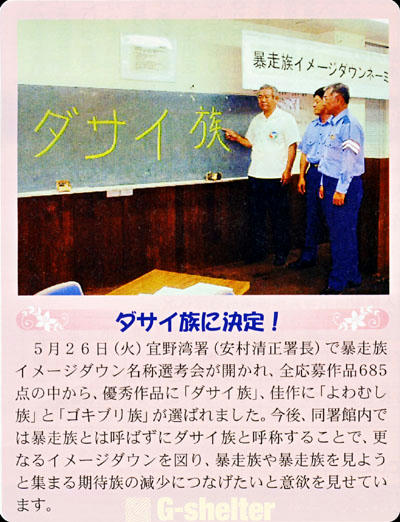 暴走族イメージダウンネーミ
ダサイ族
ダサイ族に決定！
５月２６日（火）宜野湾署（安村清正署長）で暴走族
イメージダウン名称選考会が開かれ、全応募作品685
点の中から、優秀作品に「ダサイ族」、佳作に「よわむし
族」と「ゴキブリ族」が選ばれました。今後、同署館内で
は暴走族とは呼ばずにダサイ族と呼称することで、更
なるイメージダウンを図り、暴走族や暴走族を見よう
と集まる期待族の減少につなげたいと意欲を見せてい
ます。
G-shelter